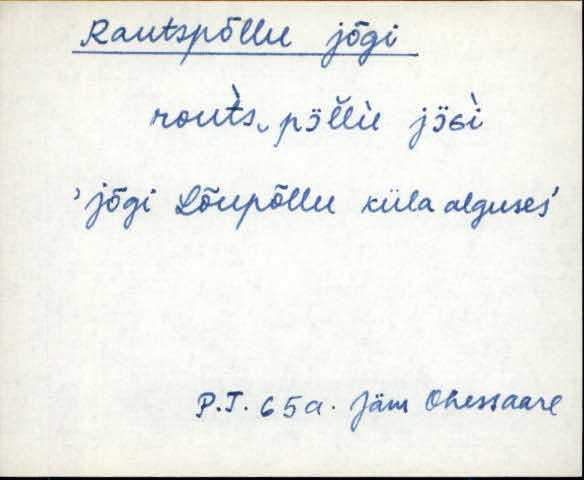 Rautspõllu jõgi
routs‿pölˇlu jöGi
'jõgi Lõupõllu küla alguses'
P.T. 65 a. Jäm Ohessaare